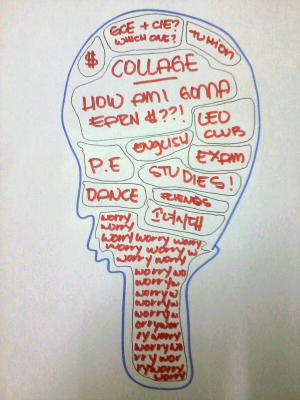 GCE + CIE?
WHICH ONE?
TUITION
$
COLLAGE
HOW AM I GONNA
EARN $??!
LEO
CLUB
ENGLISH
EXAM
P.E
STUDIES!
DANCE
FRIENDS
worry
worry
worry worry worry
worry worry w
worry worry
worry wo
worry w
worry w
worry w
worry w
worry w
orry wor
ry worry
worry wo
rry wor
ry worry
worry